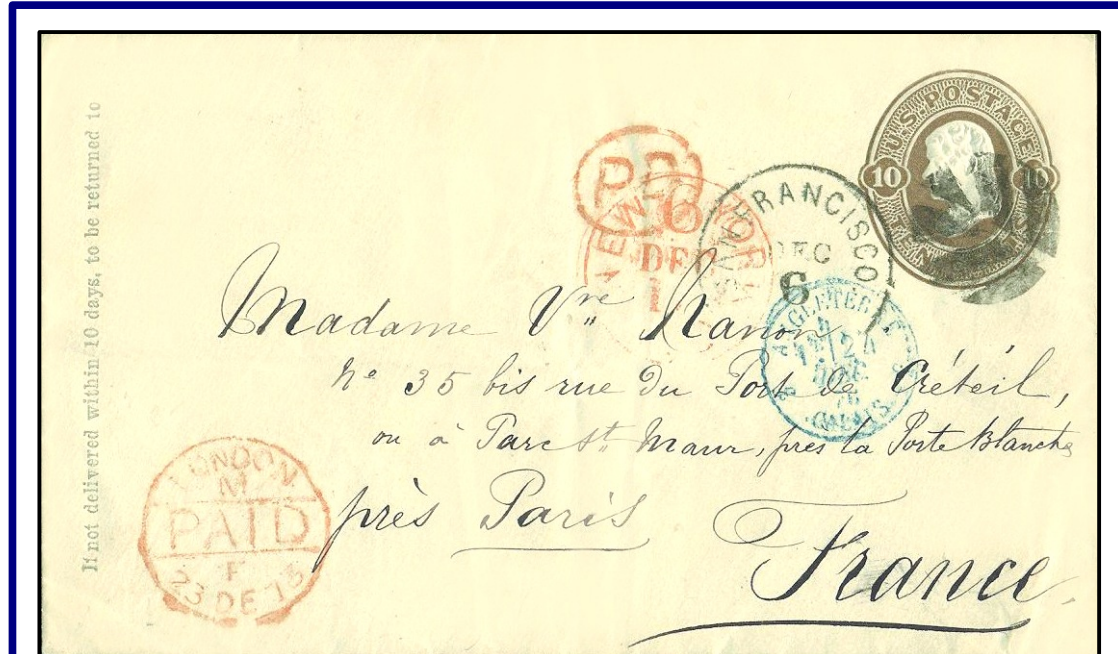 If not delivered within 10 days, to be returned to
U.S. POSTAGE
10 10
PD
NEW YORK
6
DEC
SAN FRANCISCO
DEC
6
ANGLETERRE
24
DEC
75
CALAIS
Madame Vve Nanon
No 35 bis rue du Port de Créteil,
ou à Parc St. Maur, près la Porte Blanche
près Paris
France.
LONDON
M
PAID
F
23 DE 75